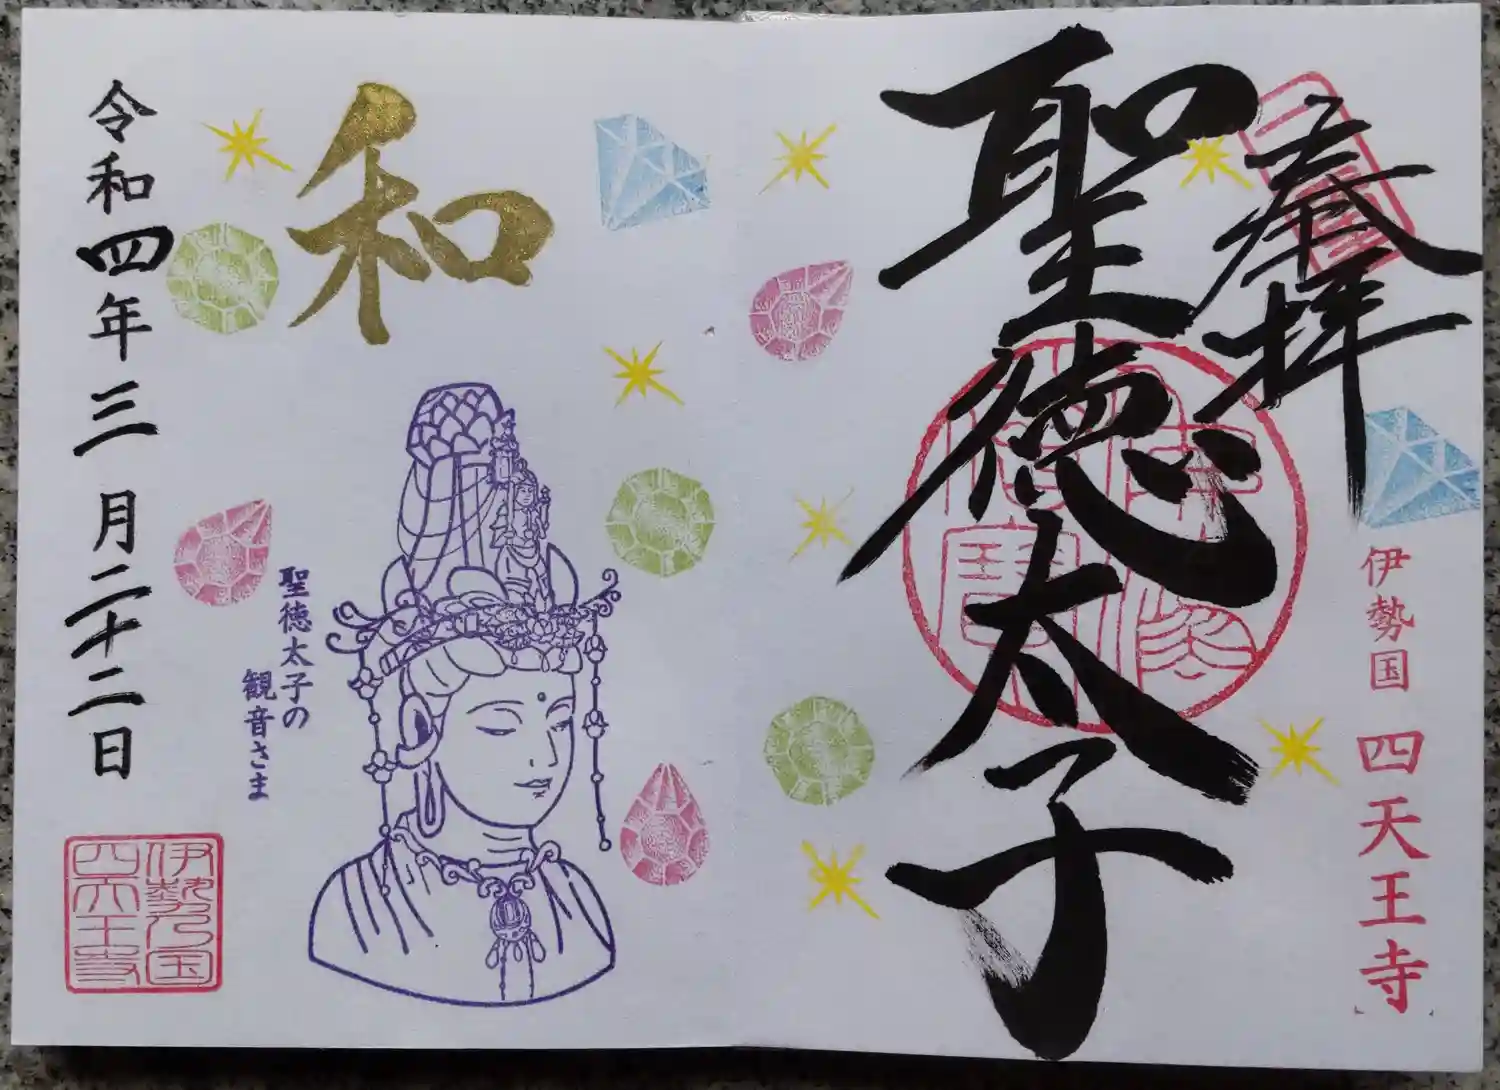 奉拝
聖徳太子
伊勢国 四天王寺
和
聖徳太子の
観音さま
令和四年三月二十二日
伊勢乃国
四天王寺